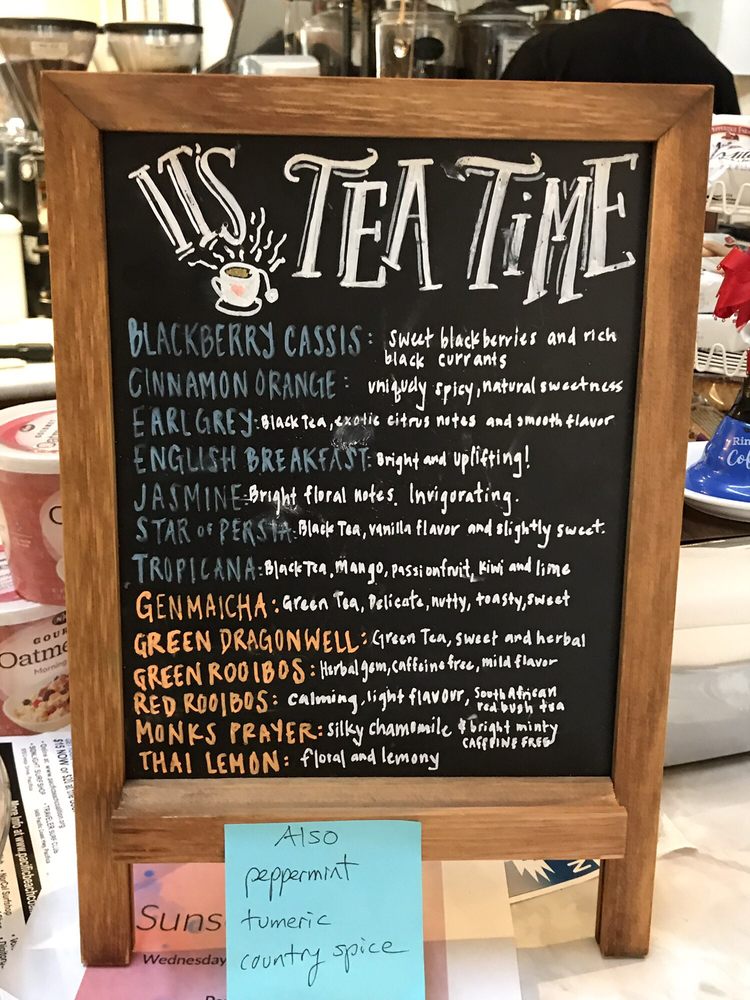 IT'S TEA TIME
BLACKBERRY CASSIS: sweet blackberries and rich
black currants
CINNAMON ORANGE: uniquely spicy, natural sweetness
EARL GREY: Black Tea, exotic citrus notes and smooth flavor
ENGLISH BREAKFAST: Bright and uplifting!
JASMINE: Bright floral notes. Invigorating.
STAR OF PERSIA: Black Tea, vanilla flavor and slightly sweet.
TROPICANA: Black Tea, Mango, passionfruit, kiwi and lime
GENMAICHA: Green Tea, Delicate, nutty, toasty, sweet
GREEN DRAGONWELL: Green Tea, sweet and herbal
GREEN ROOIBOS: Herbal gem, caffeine free, mild flavor
RED ROOIBOS: calming, light flavour, South African
red bush tea
MONKS PRAYER: silky chamomile & bright minty
CAFFEINE FREE
THAI LEMON: floral and lemony
Also
peppermint
tumeric
country spice
Wednesday
GOUR
Oatme
Morning